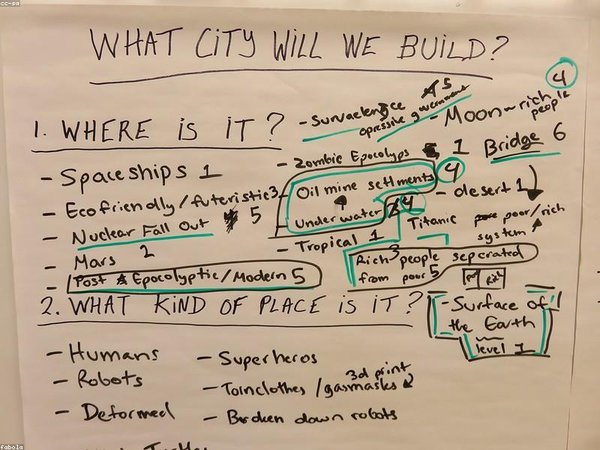 cc-sa
WHAT CITY WILL WE BUILD?
1. WHERE IS IT?
- Spaceships 1
- Ecofriendly/futeristic 3
- Nuclear Fall Out 5
- Mars 2
- Post Epocolyptic/Modern 5
- Survaelence 5
opressive government
- Zombie Epocolyps 1
Oil mine setlments 4
Under water 4
- Tropical 1
- Moon - rich people 4
Bridge 6
- desert 1
Titanic
poor/rich
system
Rich people seperated
from poor 5
3
exit
- Surface of
the Earth
level 1
2. WHAT KIND OF PLACE IS IT?
- Humans
- Robots
- Deformed
- Superheros
- Tornclothes/gasmasks
3d print
- Broken down robots
fabola